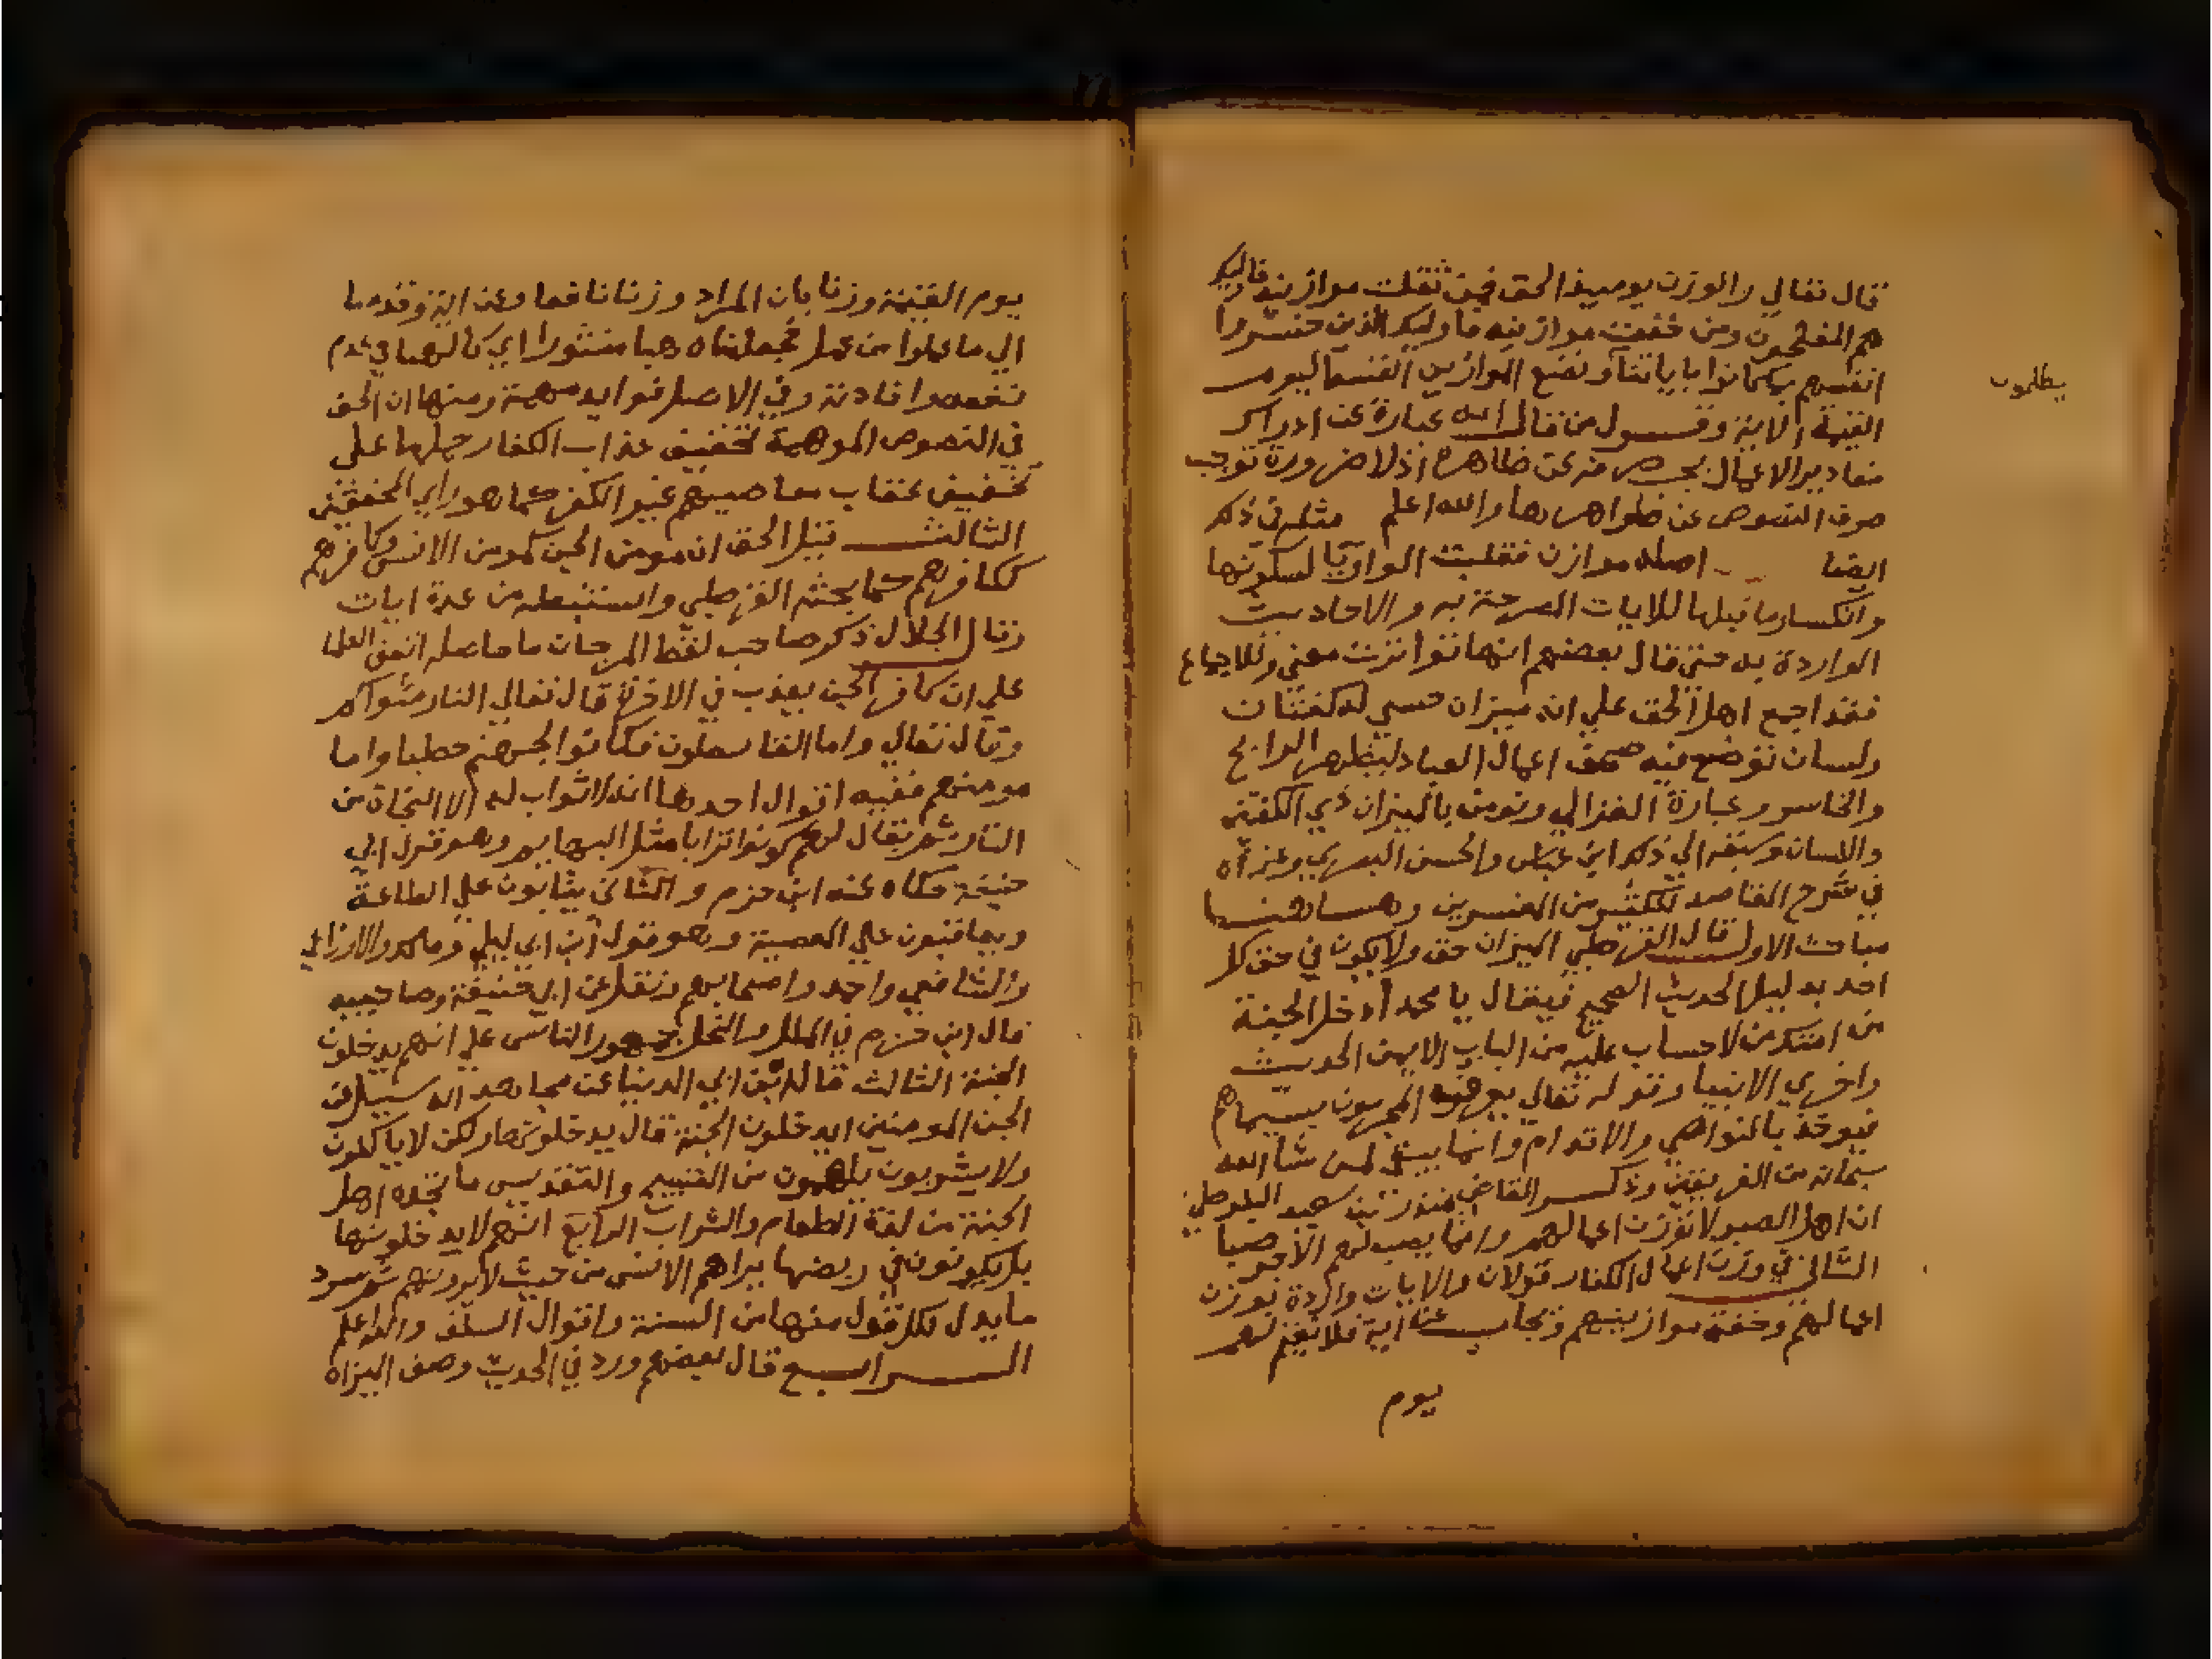 قال تعالي والوزن يوميذ الحق فمن ثقلت موازينه فاوليك
هم المفلحون ومن خفت موازينه فاوليك الذين خسروا
انفسهم بما كانوا باياتنا ونضع الموازين القسط ليوم
يظلمون
القيمة الاية وقول من قال انه عبارة عن ادراك
مقادير الاعمال بحسب صرفه عن ظاهره اذ لا ضرورة توجب
صرف النصوص عن ظواهرها والله اعلم مثله في ذكر
ايضا اصله موازن فقلبت الواو يا لسكونها
وانكسار ما قبلها للايات المصرحة به والاحاديث
الواردة به حتي قال بعضهم انها تواترت معني وللاجماع
فقد اجمع اهل الحق علي انه ميزان حسي له كفتان
ولسان توضع فيه صحف اعمال العباد ليظهر الرابح
والخاسر وعبارة الغزالي ونومن بالميزان ذي الكفتين
واللسان وسبقه الي ذكر ابن عباس والحسن البصري وعزاه
في شرح المقاصد لكثير من المفسرين وهاهنا
مباحث الاول قال القرطبي الميزان حق ولا يكون في حق كل
احد بدليل الحديث الصحيح فيقال يا محمد ادخل الجنة
من امتك من لا حساب عليه من الباب الايمن الحديث
واخري الانبيا وقوله تعالي يعرف المجرمون بسيماهم
فيوخذ بالنواصي والاقدام وانما يبقي لمن شا الله
سبحانه من الفريقين وذكر القاضي منذر بن سعيد البلوطي
ان اهل الصبر لا توزن اعمالهم وانما يصب لهم الاجر صبا
الثاني في وزن اعمال الكفار قولان والايات واردة بوزن
اعمالهم وخفة موازينهم وتجاب عن اية فلا نقيم لهم
يوم
يوم القيمة وزنا بان المراد وزنا نافعا وعن اية وقدمنا
الي ما عملوا من عمل فجعلناه هبا منثورا اي كالهبا في عدم
في الاصل فوايد مهمة ومنها ان الحق
في النصوص الموهمة تخفيف عذاب الكفار حملها علي
تخفيف عقاب معاصيهم غير الكفر كما هو راي المحققين
الثالث قيل الحق ان مومن الجن كمومن الانس وكافرهم
ككافرهم كما بحثه القرطبي واستنبطه من عدة ايات
وقال الجلال ذكر صاحب لقط المرجان ما حاصله اتفق العلما
علي ان كافر الجن يعذب في الاخرة قال تعالي النار مثواكم
وقال تعالي واما القاسطون فكانوا لجهنم حطبا واما
مومنهم ففيه اقوال احدها انه لا ثواب له الا النجاة من
النار ثم يقال لهم كونوا ترابا مثل البهايم وهو قول ابي
حنيفة حكاه عنه ابن حزم والثاني يثابون علي الطاعة
ويعاقبون علي المعصية وهو قول ابن ابي ليلي ومالك والاوزاعي
والشافعي واحمد واصحابهم ونقل عن ابي حنيفة وصاحبيه
قال ابن حزم في الملل والنحل جمهور الناس علي انهم يدخلون
الجنة الثالث قال ابن ابي الدنيا عن مجاهد انه سيل عن
الجن المومنين ايدخلون الجنة قال يدخلونها ولكن لا ياكلون
ولا يشربون يلهمون من التسبيح والتقديس ما تجده اهل
الجنة من لذة الطعام والشراب الرابع انهم لا يدخلونها
بل يكونون في ربضها يراهم الانس من حيث لا يرونهم ثم سرد
ما يدل لكل قول منها من السنة واقوال السلف والله اعلم
الرابع قال بعضهم ورد في الحديث وصف الميزان